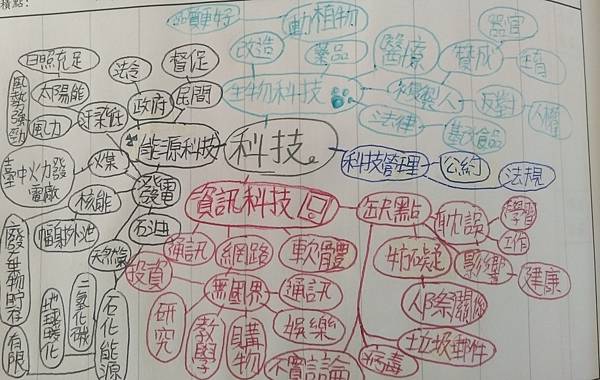 積點:
品質更好
動植物
改造
藥品
醫療
贊成
器官
生物科技
複製人
反對
人權
法律
基改食品
科技
科技管理
公約
法規
能源科技
政府
法令
民間
督促
日照充足
太陽能
風勢強勁
風力
可柔性
發電
火煤
臺中火力發電廠
核能
輻射外泄
石油
天然氣
廢棄物貯存
有限
石化能源
二氧化碳
地球暖化
資訊科技
通訊
網路
軟體
無國界
投資
研究
教學
購物
不實言論
娛樂
通訊
缺點
耽誤
學習
工作
影響
健康
妨礙
人際關係
垃圾郵件
病毒